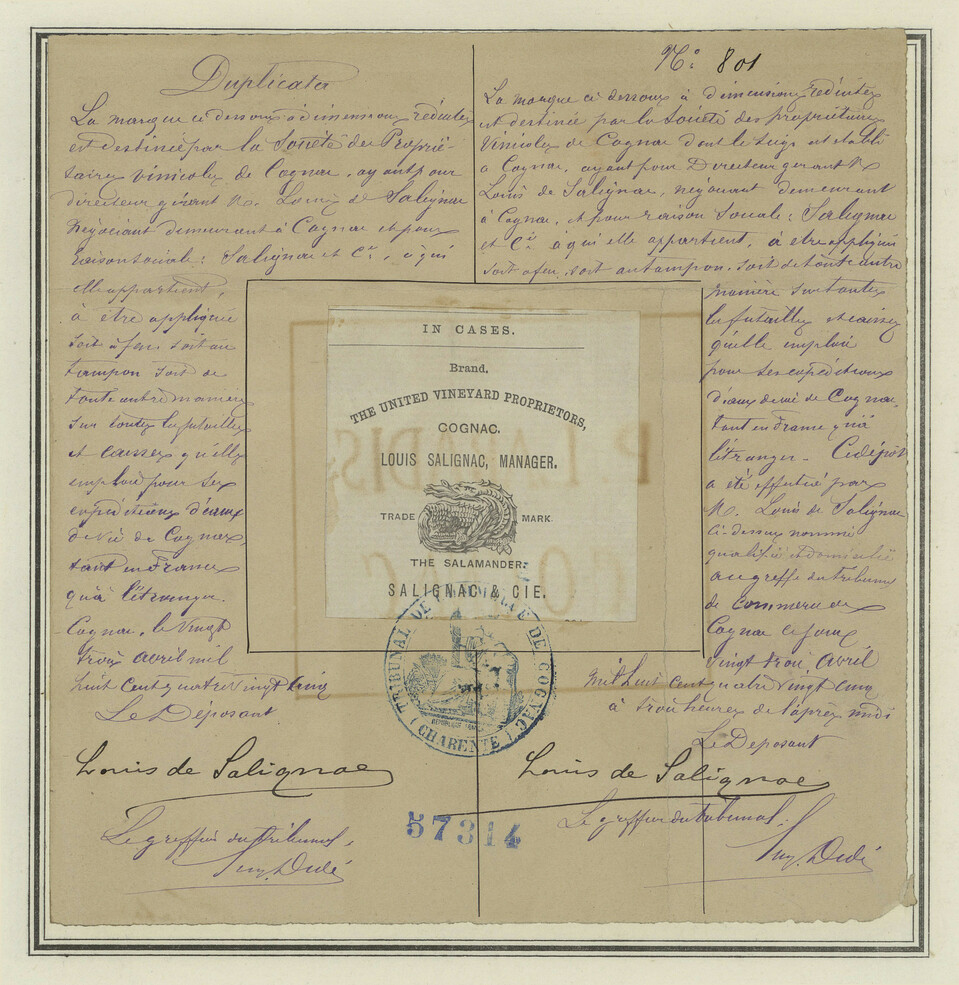 Duplicata
La marque ci dessous à dimensions réduites
est destinée par la Société des Proprié-
taires vinicoles de Cognac, ayant pour
directeur gérant M. Louis de Salignac
Négociant demeurant à Cognac et pour
raison sociale: Salignac et Cie, à qui
elle appartient,
à être appliquée
soit à feu soit au
tampon soit de
toute autre manière
sur toutes les futailles
et caisses qu'elle
emploie pour ses
expéditions d'eaux
de vie de Cognac,
tant en France
qu'à l'étranger.
Cognac, le vingt
trois avril mil
huit cent quatre vingt cinq
Le Déposant
Louis de Salignac
Le greffier du tribunal,
No: 801
La marque ci dessous à dimensions réduites
est destinée par la Société des propriétaires
Vinicoles de Cognac dont le siège est établi
à Cognac, ayant pour Directeur gérant M.
Louis de Salignac, négociant demeurant
à Cognac, et pour raison sociale: Salignac
et Cie à qui elle appartient, à être appliquée
soit à feu, soit au tampon, soit de toute autre
manière sur toutes
les futailles et caisses
qu'elle emploie
pour ses expéditions
d'eaux de vie de Cognac,
tant en France qu'à
l'étranger. Ce dépôt
a été effectué par
M. Louis de Salignac
ci-dessus nommé
qualifié et domicilié
au greffe du tribunal
de commerce de
Cognac ce jour
vingt trois Avril
mil huit cent quatre vingt cinq
à trois heures de l'après midi
Le Deposant
Louis de Salignac
Le greffier du tribunal.
IN CASES.
Brand.
THE UNITED VINEYARD PROPRIETORS,
COGNAC.
LOUIS SALIGNAC, MANAGER.
TRADE MARK.
THE SALAMANDER.
SALIGNAC & CIE.
TRIBUNAL DE COMMERCE DE COGNAC
(CHARENTE)
57314